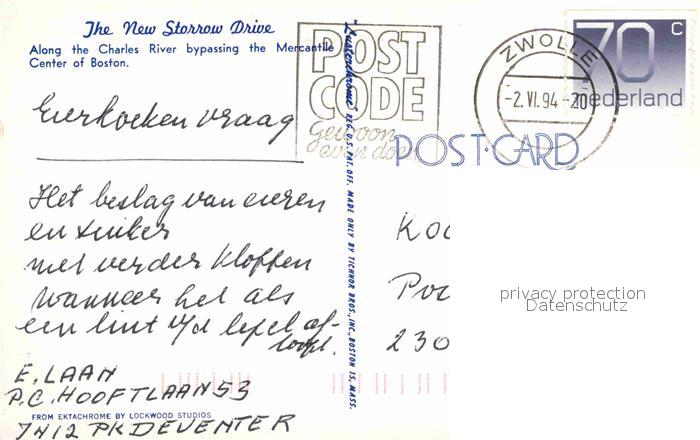 The New Storrow Drive
Along the Charles River bypassing the Mercantile
Center of Boston.
POST
CODE
Gewoon
even doen
ZWOLLE
-2.VI.94-20
70 c
nederland
POST-CARD
Eierkoeken vraag
Het beslag van eieren
en suiker
niet verder kloppen
wanneer het als
een lint v/d lepel af-
loopt.
E. LAAN
P.C. HOOFTLAAN 53
7412 PK DEVENTER
FROM EKTACHROME BY LOCKWOOD STUDIOS
"Lusterchrome" REG. U.S. PAT. OFF. MADE ONLY BY TICHNOR BROS., INC., BOSTON 15, MASS.
Koo
Po
230
privacy protection
Datenschutz